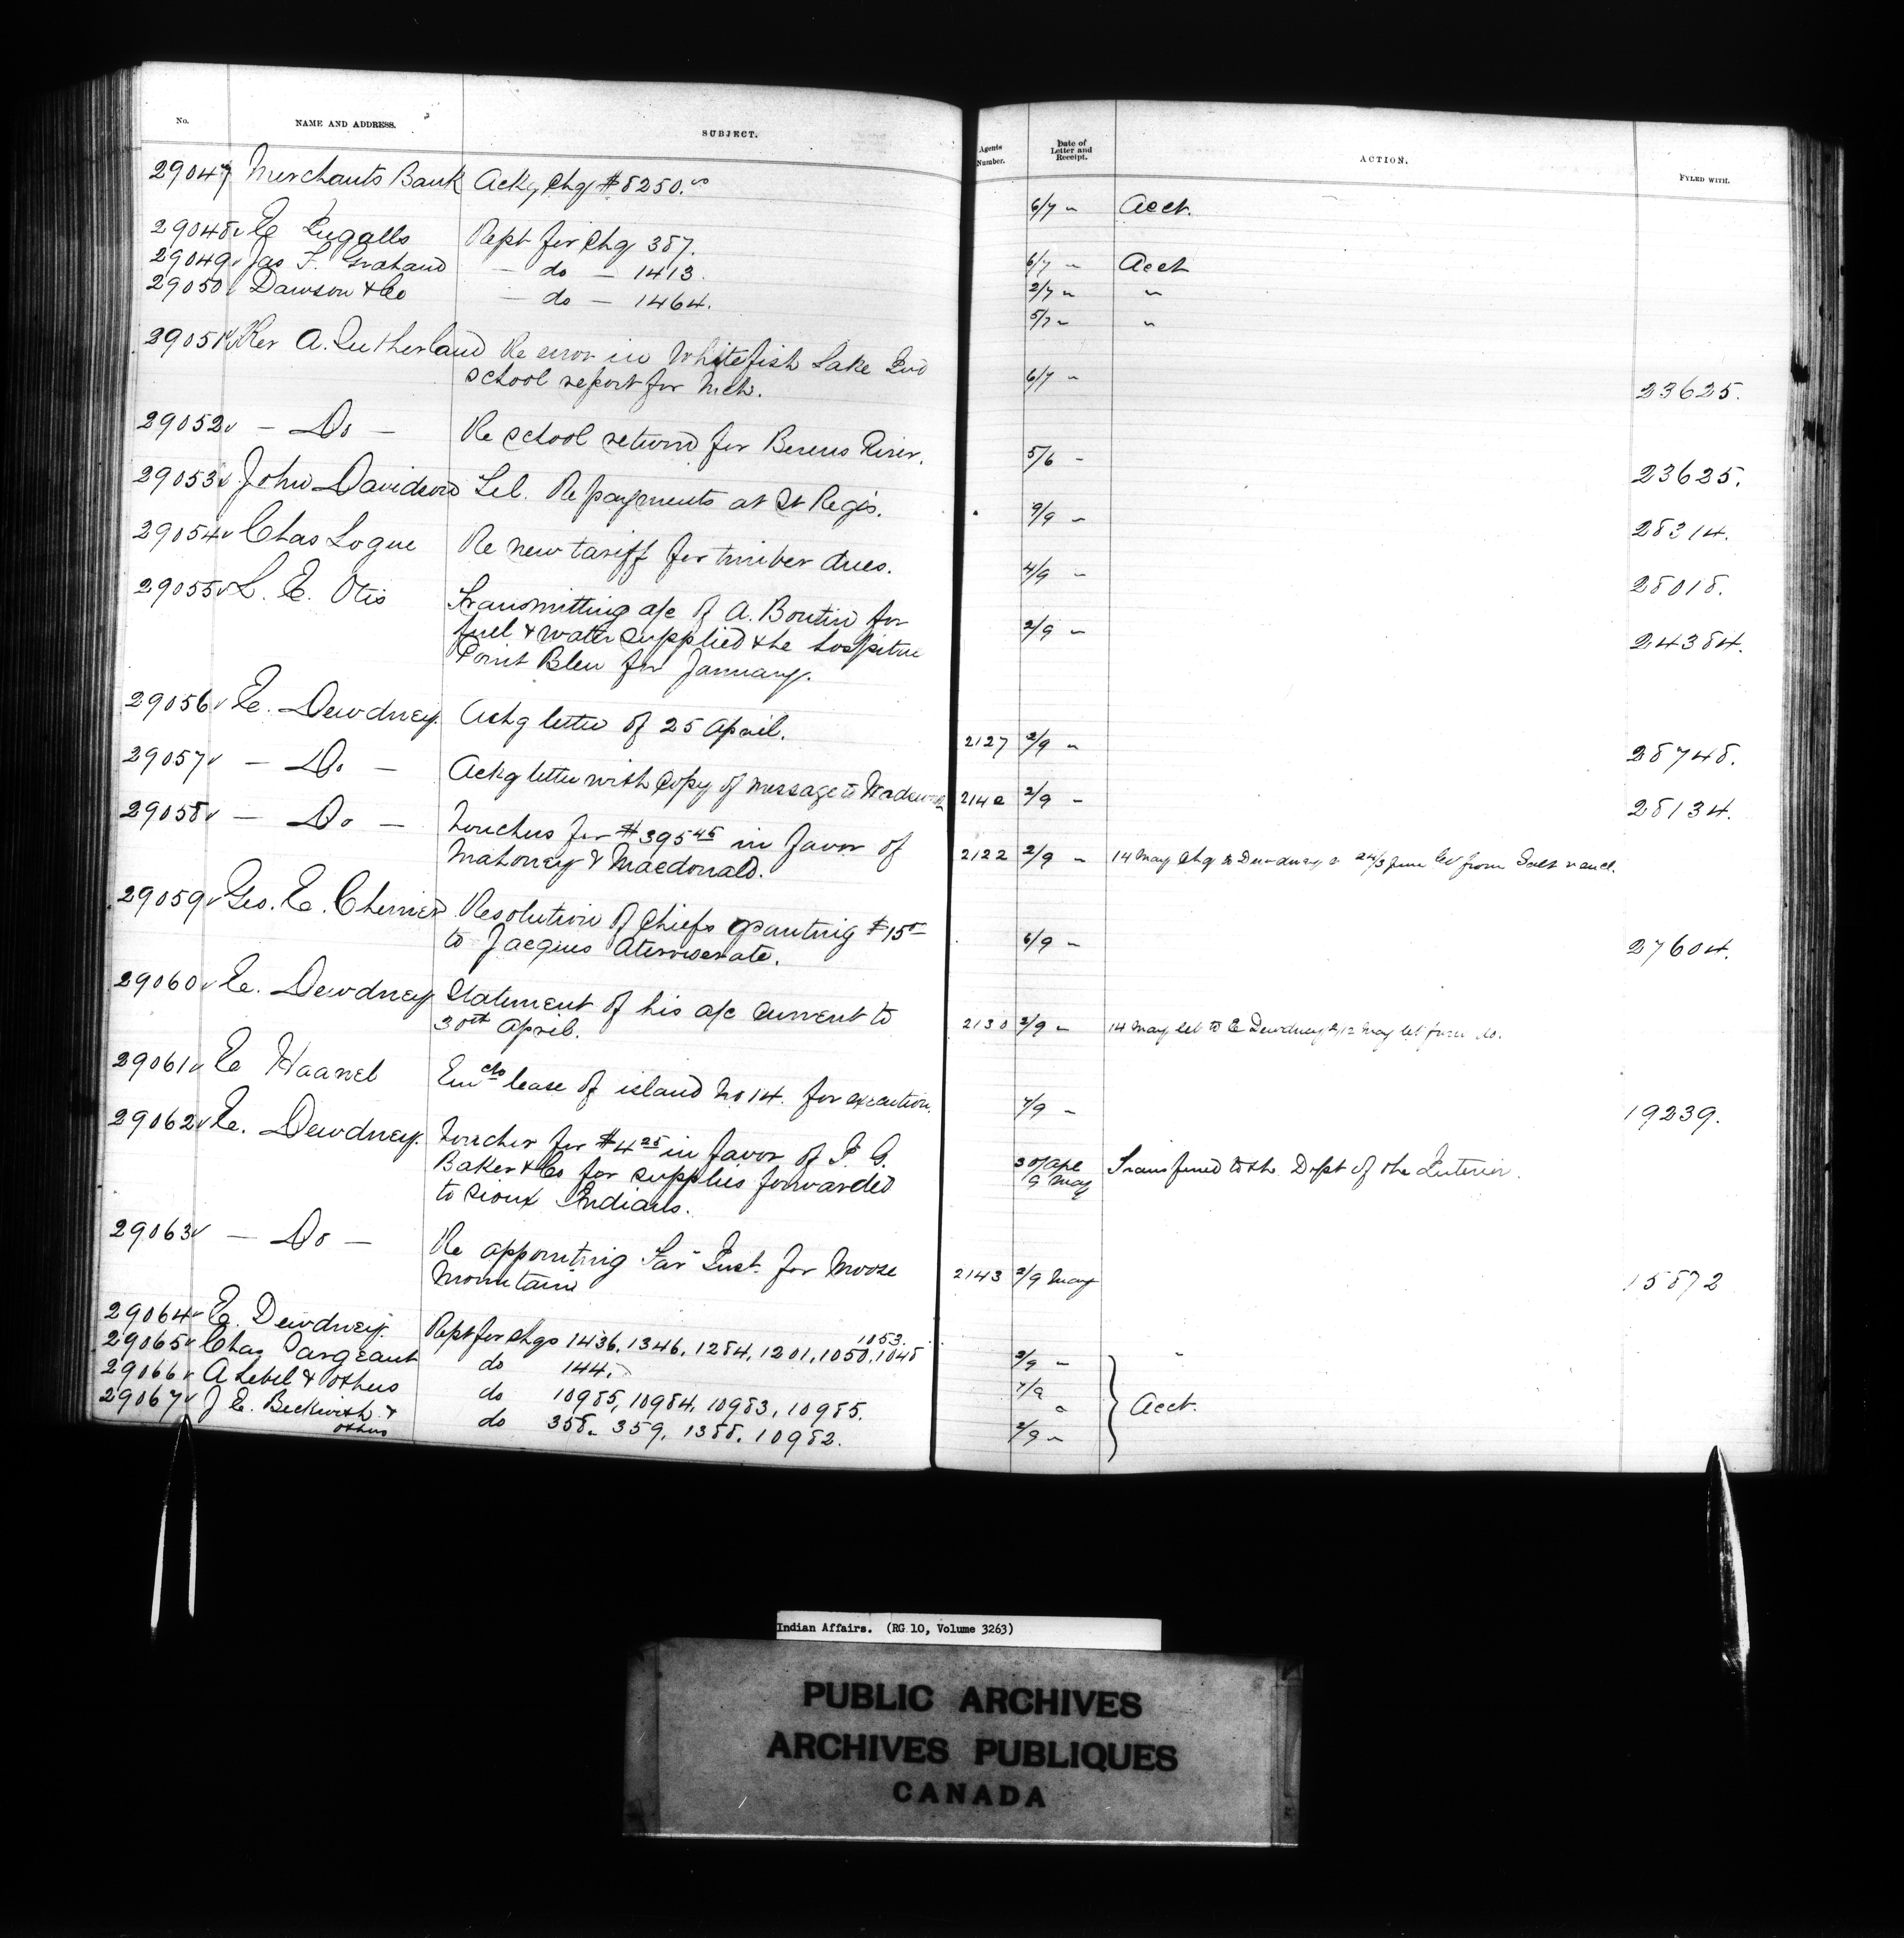 No. NAME AND ADDRESS. SUBJECT. Agents Number. Date of Letter and Receipt. ACTION. FYLED WITH.
29047 Merchants Bank Ackg Chq $8250.00 6/7 " Acct.
29048 E Ingalls Rept for Chq 387. 6/7 " Acct
29049 Jas F. Graham — do — 1413. 2/7 " "
29050 Dawson & Co — do — 1464. 5/7 " "
29051 Rev A. Sutherland Re error in Whitefish Lake Ind 6/7 " 23625.
school report for Mch.
29052 — Do — Re school return for Berens River. 5/6 " 23625.
29053 John Davidson Tel. Re payments at St Regis. 9/9 " 28314.
29054 Chas Logue Re new tariff for timber dues. 4/9 " 28018.
29055 L. E. Otis Transmitting a/c of A. Boutin for 2/9 " 24384.
fuel & water supplied the hospital
Point Bleu for January.
29056 E. Dewdney. Ackg letter of 25 April. 2127 2/9 " 28748.
29057 — Do — Ackg letter with copy of message to 2142 2/9 " 28134.
29058 — Do — Vouchers for $395 45 in favor of 2122 2/9 " 14 May Chq to Dewdney
Mahoney & Macdonald.
29059 Geo. E. Cherrier Resolution of Chiefs granting $15 6/9 " 27604.
to Jacques
29060 E. Dewdney Statement of his a/c current to 2130 2/9 " 14 May let to E Dewdney & 12 May let from do.
30th April.
29061 E Haanel lease of island No 14. for execution. 7/9 " 19239.
29062 E. Dewdney. Voucher for $4 25 in favor of I. G. 30/Apl 9 May Transferred to the Dept of the Interior.
Baker & Co for supplies forwarded
to Sioux Indians.
29063 — Do — Re appointing Far Inst. for Moose 2143 2/9 May 15872
Mountain
29064 E. Dewdney. Rept for Chqs 1436, 1346, 1284, 1201, 1050, 1048 1053. 2/9 " "
29065 Chas Sargeant do 144. 7/9
29066 A Lebel & others do 10985, 10984, 10983, 10985. " Acct.
29067 J E. Beckwith & others do 358. 359. 1388. 10982. 2/9 "
Indian Affairs. (RG 10, Volume 3263)
PUBLIC ARCHIVES
ARCHIVES PUBLIQUES
CANADA